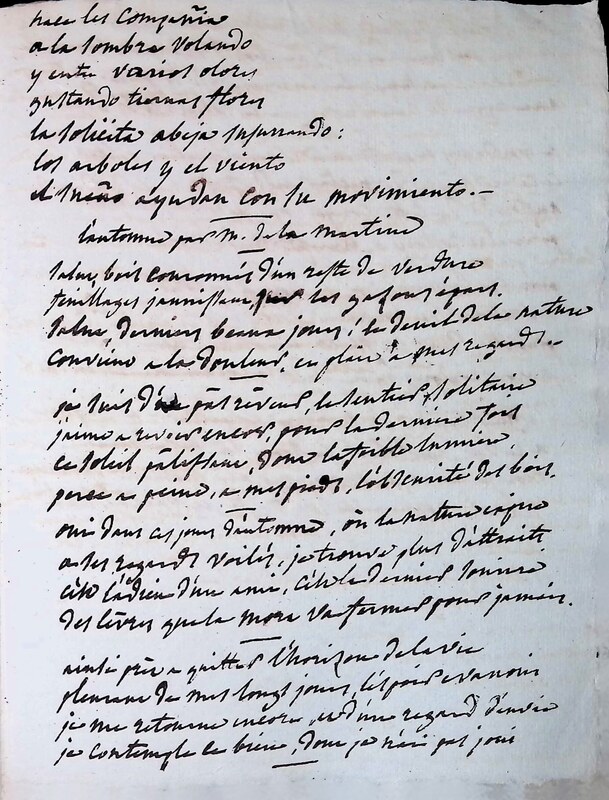 hace les Compañia
a la sombra volando
y entre varios olores
gustando tiernas flores
la solicita abeja susurrando:
los arboles y el viento
al sueño ayudan con su movimiento.—
l'automne par M. de la Martine
Salut, bois couronnés d'un reste de verdure
feuillages jaunissans, sur les gazons épars.
Salut, derniers beaux jours! le deuil de la nature
Convient a la douleur, en plait à mes regards.—
je suis d'un pas rêveur, le sentier solitaire
jaime a revoir encor, pour la derniere fois
ce soleil pâlissant, dont la foible lumiere
perce a peine, a mes pieds, l'obscurité des bois.
oui dans ces jours d'automne, où la nature expire
a ses regards voilés, je trouve plus d'attraits
c'est l'adieu d'un ami, c'est le dernier sourire
des lèvres que la mort va fermer pour jamais.
ainsi prêt a quitter l'horizon de la vie
pleurant de mes longs jours, l'espoir evanoui
je me retourne encore, et d'un regard d'envie
je contemple ce bien, dont je n'ai pas joui